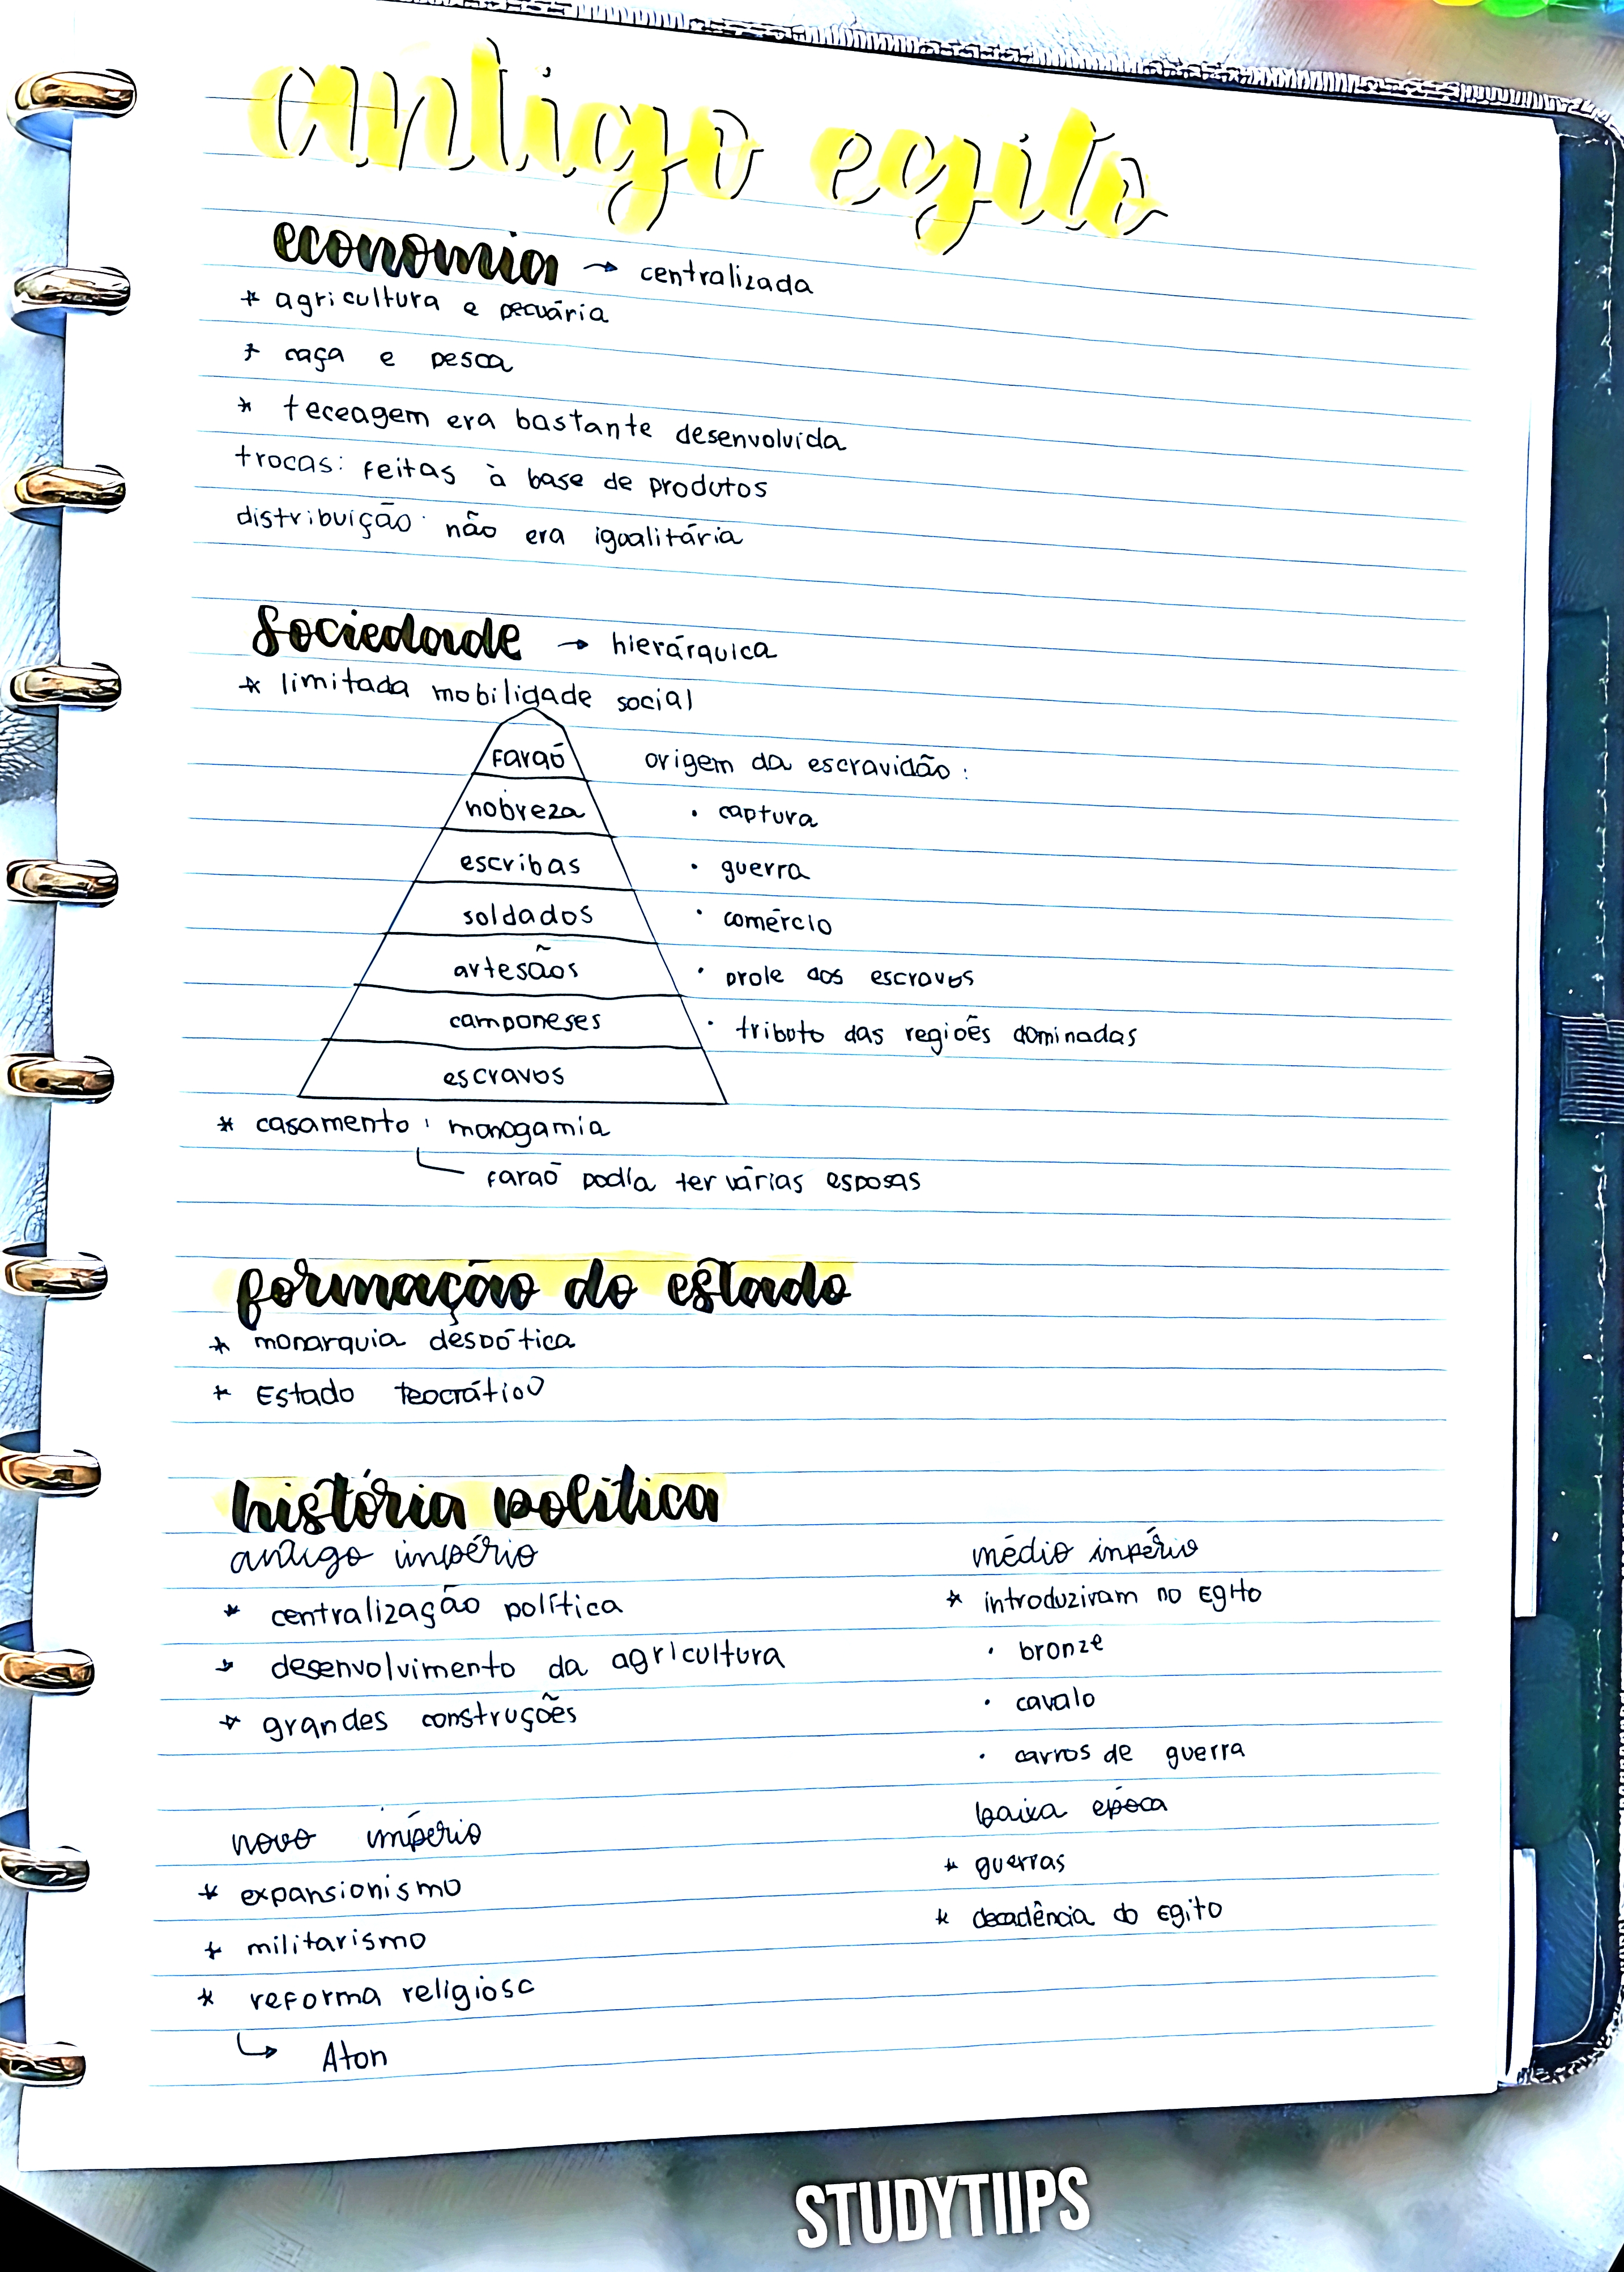 antigo egito
economia → centralizada
* agricultura e pecuária
* caça e pesca
* teceagem era bastante desenvolvida
trocas: feitas à base de produtos
distribuição: não era igualitária
sociedade → hierárquica
* limitada mobilidade social
faraó
nobreza
escribas
soldados
artesãos
camponeses
escravos
origem da escravidão:
• captura
• guerra
• comércio
• prole dos escravos
• tributo das regiões dominadas
* casamento: monogamia
faraó podia ter várias esposas
formação do estado
* monarquia despótica
* Estado teocrático
história política
antigo império
* centralização política
* desenvolvimento da agricultura
* grandes construções
médio império
* introduziram no Egito
• bronze
• cavalo
• carros de guerra
novo império
* expansionismo
* militarismo
* reforma religiosa
↳ Aton
baixa época
* guerras
* decadência do Egito
STUDYTIIPS